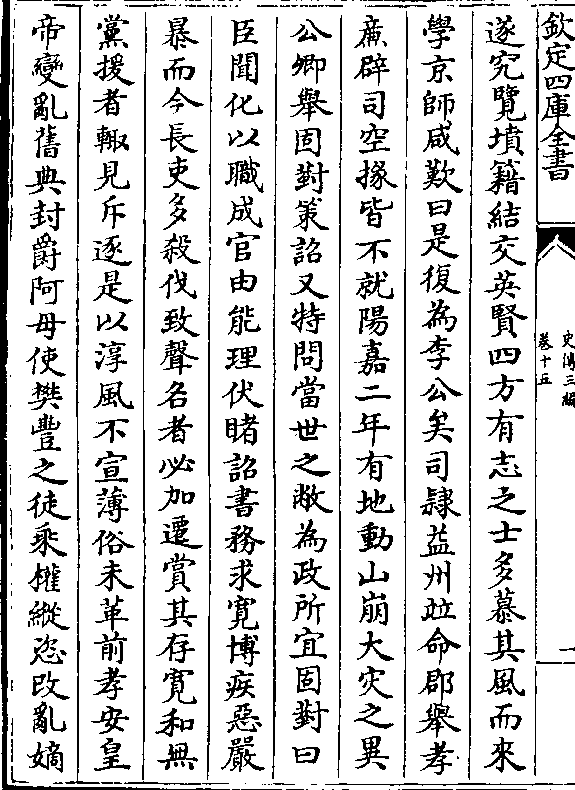 欽定四庫全書
史傳三編
卷十五
一
遂究覽墳籍結交英賢四方有志之士多慕其風而來
學京師咸歎曰是復為李公矣司隸益州竝命郡舉孝
亷辟司空掾皆不就陽嘉二年有地動山崩大灾之異
公卿舉固對策詔又特問當世之敝為政所宜固對曰
臣聞化以職成官由能理伏睹詔書務求寛博疾惡嚴
暴而今長吏多殺伐致聲名者必加遷賞其存寛和無
黨援者輙見斥逐是以淳風不宣薄俗未革前孝安皇
帝變亂舊典封爵阿母使樊豐之徒乘權縱恣改亂嫡